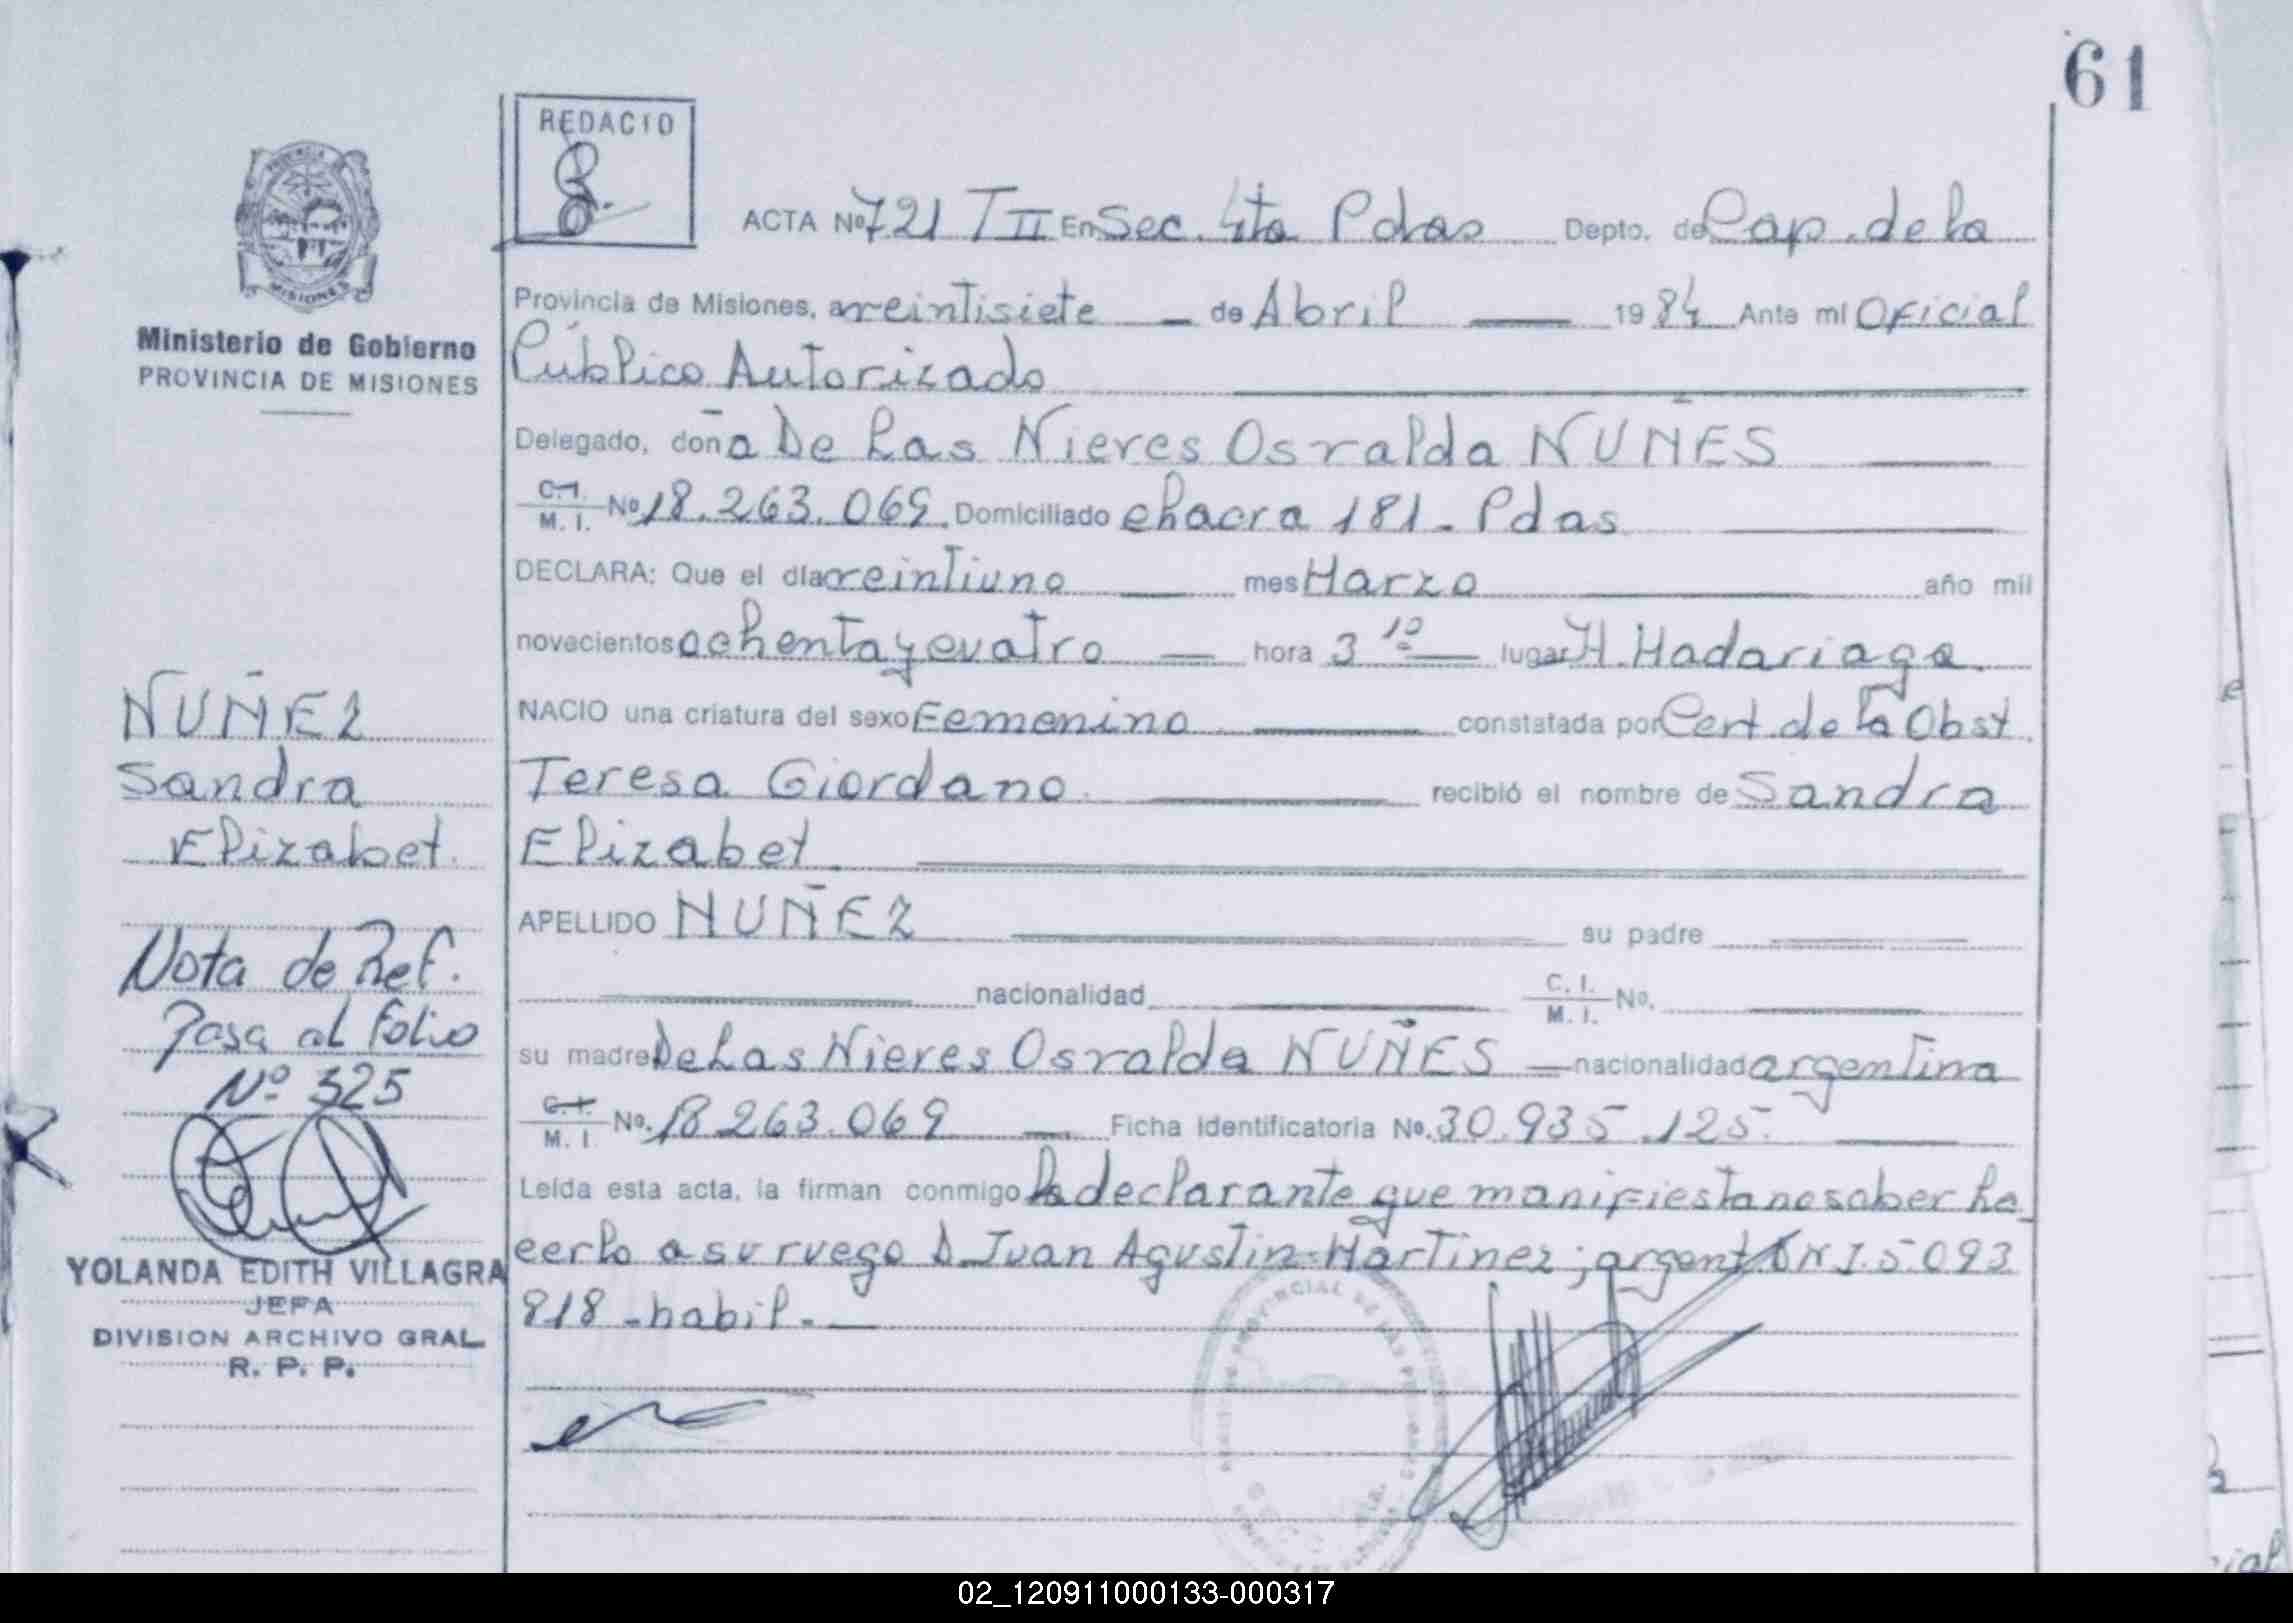 61
REDACTO
ACTA Nº 721 T II En Sec. 4ta Pdas Depto. de Cap. de la
Provincia de Misiones, a veintisiete de Abril 1984 Ante mí Oficial
Público Autorizado
Delegado, doña De Las Nieves Osvalda NUÑES
C.I. M. I. Nº 18.263.069. Domiciliado chacra 181 - Pdas
DECLARA: Que el día veintiuno mes Marzo año mil
novecientos ochenta y cuatro hora 3 10 lugar H. Madariaga.
NACIO una criatura del sexo Femenino constatada por Cert. de la Obst.
Teresa Giordano recibió el nombre de Sandra
Elizabet
APELLIDO NUÑEZ su padre
nacionalidad C. I. M. I. No.
su madre De Las Nieves Osvalda NUÑES nacionalidad argentina
C.I. M. I. No. 18 263.069 Ficha identificatoria No. 30.935.125.
Leída esta acta, la firman conmigo la declarante que manifiesta no saber ha
cerlo a su ruego D. Juan Agustin Martinez; argent DNI. 5.093
818 - habil.
Ministerio de Gobierno
PROVINCIA DE MISIONES
NUÑEZ
Sandra
Elizabet.
Nota de Ref.
Pasa al Folio
Nº 325
YOLANDA EDITH VILLAGRA
JEFA
DIVISION ARCHIVO GRAL
R. P. P.
02_120911000133-000317